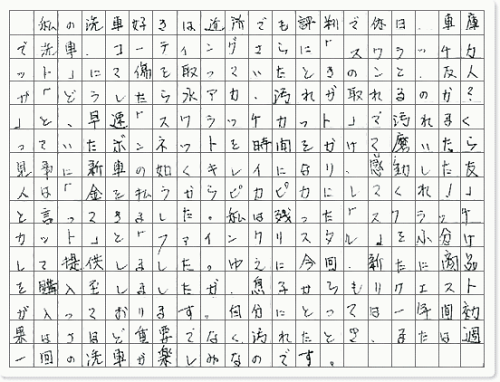 私の洗車好きは近所でも評判で休日、車庫
で洗車、コーティングさらに「スクラッチカ
ット」にて傷を取っていたときのこと、友人
が「どうしたら水アカ、汚れが取れるのか?
」と、早速「スクラッチカット」で汚れまく
っていたボンネットを時間をかけて磨いたら
見事に新車の如くキレイになり、感動した友
人は「金を払うからピカピカにしてくれ!」
と言ってきました。私は残った「スクラッチ
カット」と「ファインクリスタル」を小分け
して提供しました。ゆえに今回、新たに商品
を購入至しましたが、息子からもリクエスト
が入っております。自分にとっては一年間効
果はさほど重要でなく汚れたとき、または週
一回の洗車が楽しみなのです。